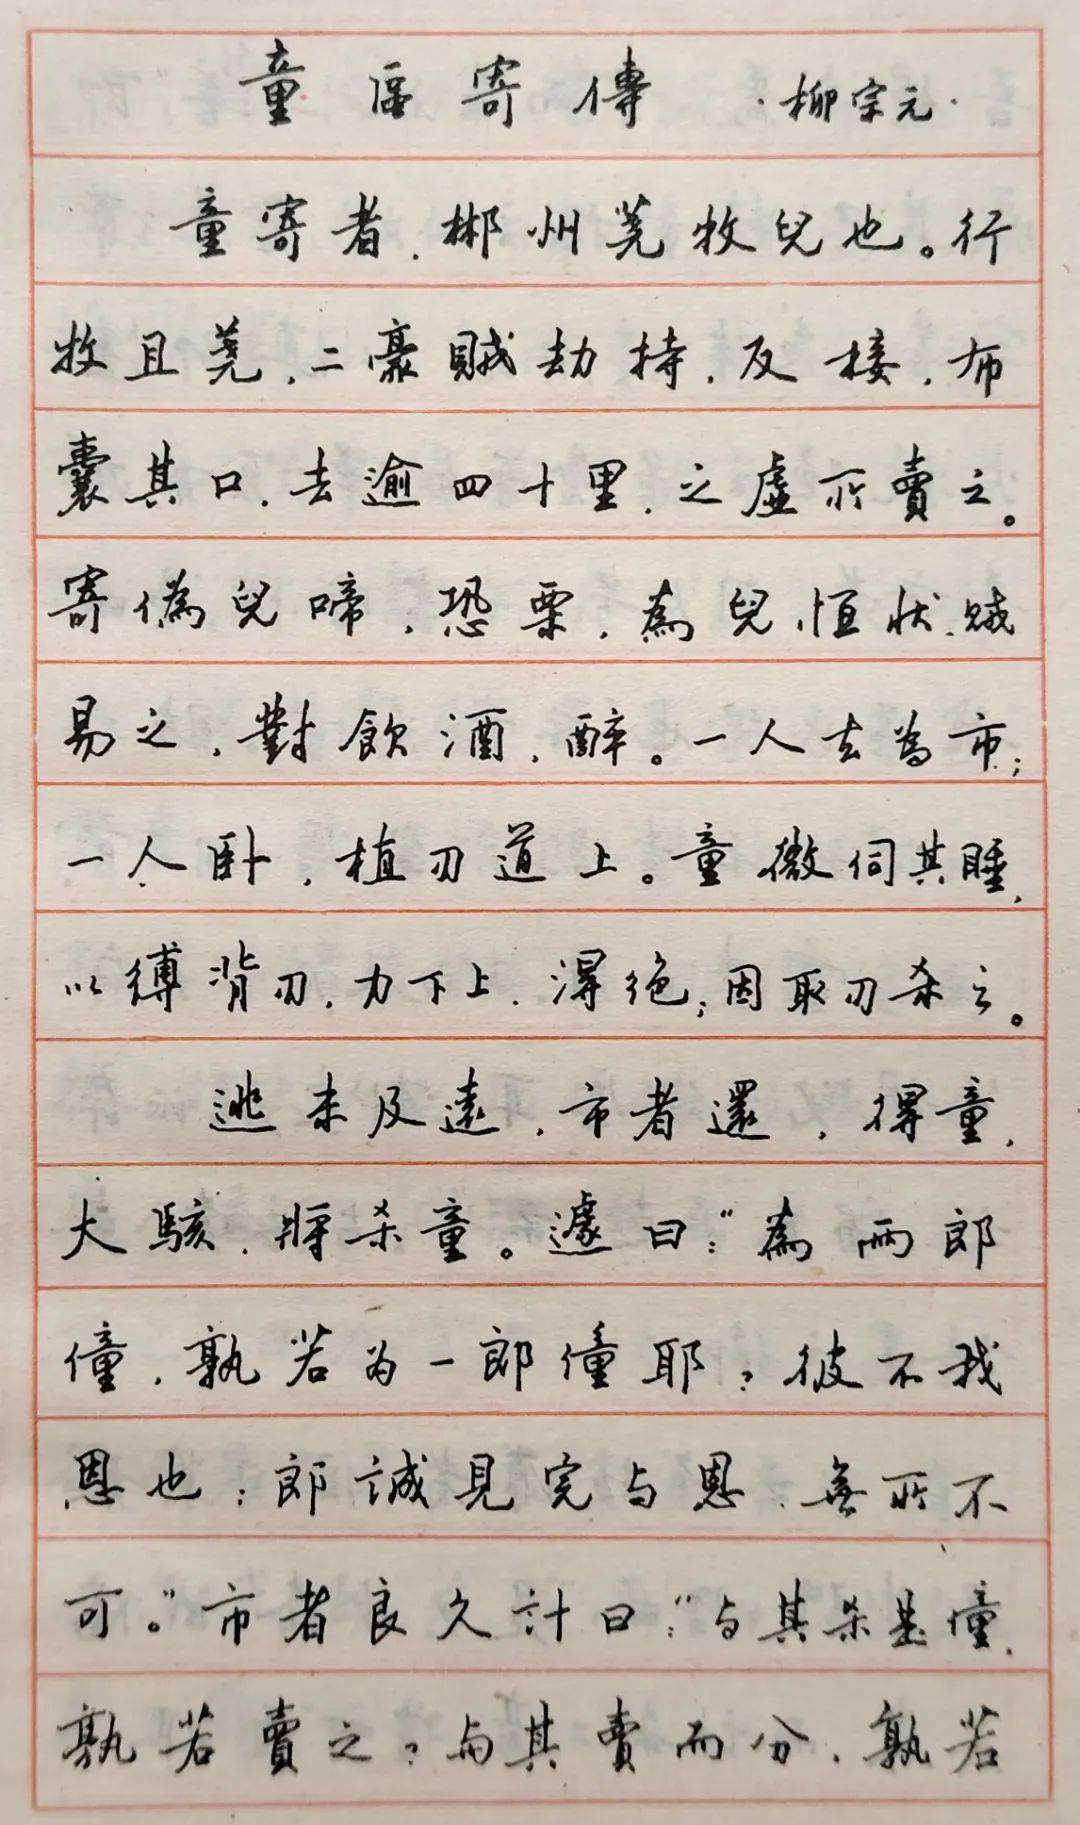 童區寄傳 ·柳宗元·
童寄者，郴州蕘牧兒也。行
牧且蕘，二豪賊劫持，反接，布
囊其口，去逾四十里，之虛所賣之。
寄偽兒啼，恐栗，為兒恒狀，賊
易之，對飲酒，醉。一人去為市；
一人卧，植刃道上。童微伺其睡，
以縛背刃，力下上，得絕；因取刃杀之。
逃未及遠，市者還，得童，
大駭，將杀童。遽曰：“為兩郎
僮，孰若为一郎僮耶？彼不我
恩也；郎誠見完与恩，無所不
可。”市者良久計曰：“与其杀是僮，
孰若賣之？与其賣而分，孰若